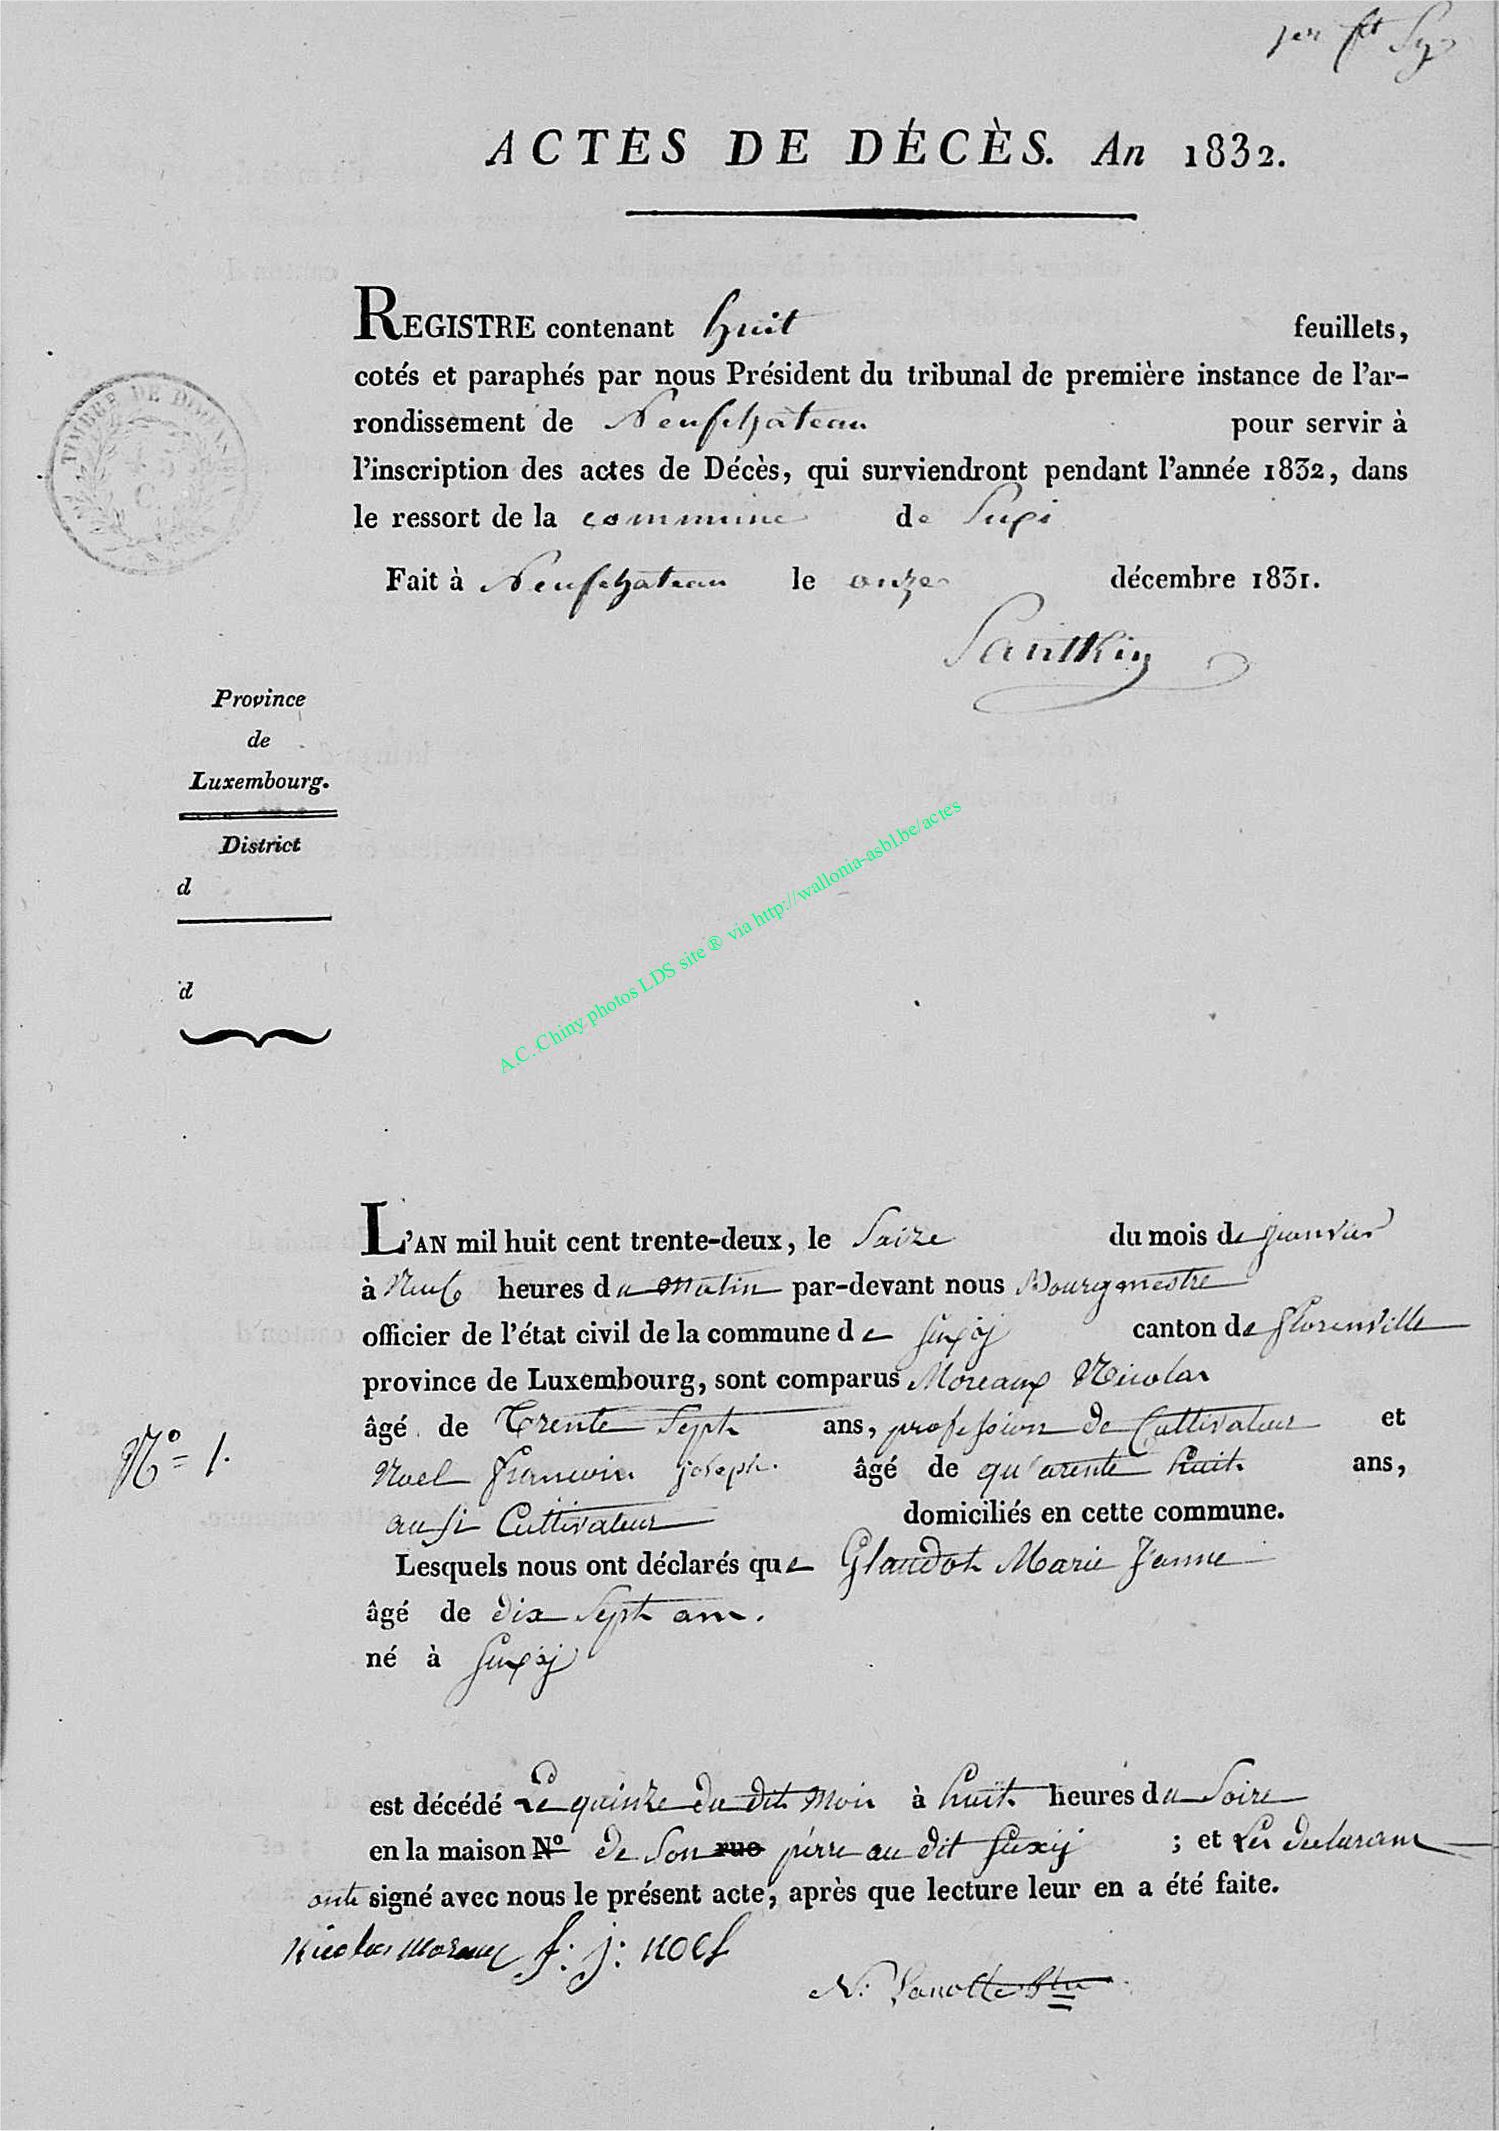 1er ft Sy
ACTES DE DÉCÈS. An 1832.
REGISTRE contenant huit feuillets,
cotés et paraphés par nous Président du tribunal de première instance de l'ar-
rondissement de Neufchateau pour servir à
l'inscription des actes de Décès, qui surviendront pendant l'année 1832, dans
le ressort de la commune de Suxi
Fait à Neufchateau le onze décembre 1831.
Santkin
TIMBRE DE DIMENSION
Province
de
Luxembourg.
District
d
d
A.C. Chiny photos LDS site ® via http://wallonia-asbl.be/actes
L'AN mil huit cent trente-deux, le Saize du mois de janvier
à Neuf heures du Matin par-devant nous Bourgmestre
officier de l'état civil de la commune de Suxÿ canton de florenville
province de Luxembourg, sont comparus Moreaux Nicolas
âgé de Trente Sept ans, profession de Cultivateur et
N° 1.
Noel francois joseph. âgé de qu'arente huit ans,
ausi Cultivateur domiciliés en cette commune.
Lesquels nous ont déclarés que Glaudot Marie Janne
âgé de dix Sept ans.
né à Suxÿ
est décédé Le quinze du dit Mois à huit heures du Soire
en la maison N° de Son rue pierre au dit Suxÿ ; et Les declarans
onts signé avec nous le présent acte, après que lecture leur en a été faite.
Nicolas Moreaux f: j: noel
N: Lanotte